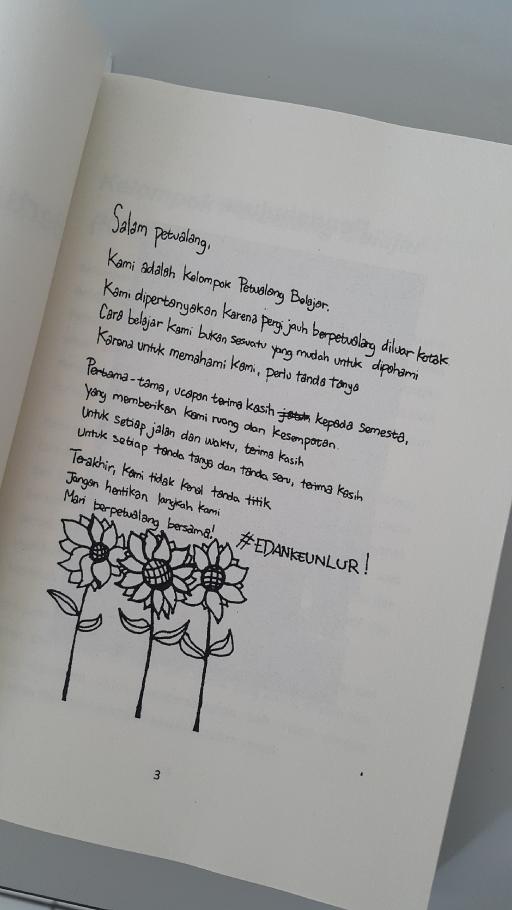 Salam petualang,
Kami adalah Kelompok Petualang Belajar.
Kami dipertanyakan karena pergi jauh berpetualang diluar kotak
Cara belajar kami bukan sesuatu yang mudah untuk dipahami
Karena untuk memahami kami, perlu tanda tanya
Pertama-tama, ucapan terima kasih jatuh kepada semesta,
yang memberikan kami ruang dan kesempatan.
Untuk setiap jalan dan waktu, terima kasih
Untuk setiap tanda tanya dan tanda seru, terima kasih
Terakhir, kami tidak kenal tanda titik
Jangan hentikan langkah kami
Mari berpetualang bersama!
#EDANKEUNLUR!
3